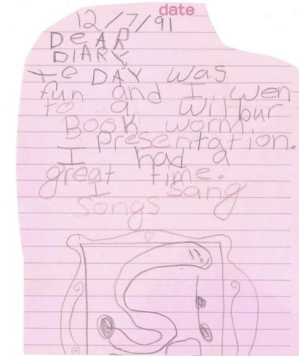 date
12/7/91
DeAR
DiARY
te DAY was
fun and I wen
to a Wilbur
Book worm
presentation.
I had a
great time.
I sang
songs